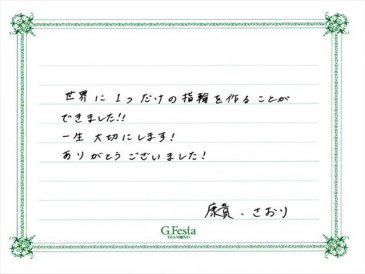 世界に1つだけの指輪を作ることが
できました!!
一生大切にします!
ありがとうございました!
康貴、さおり
G.Festa
DIAMOND